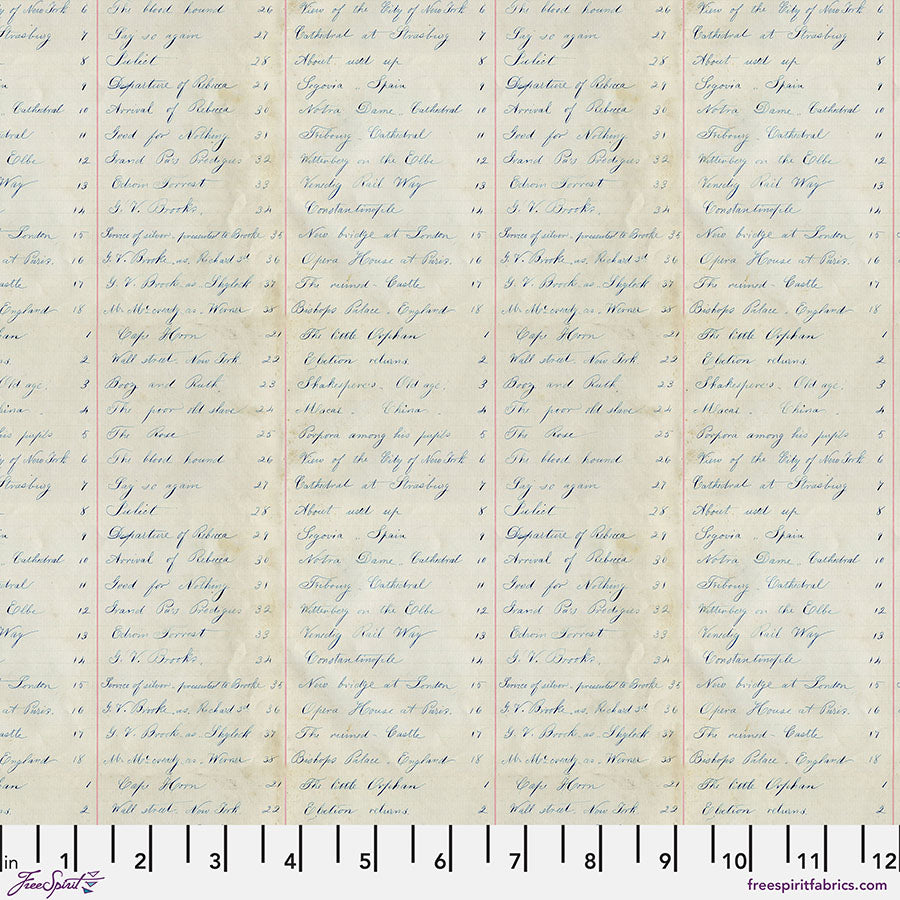 of New York 6 The blood hound 26 View of the City of New York 6 The blood hound 26 View of the City of New York 6
Strasburg 7 Say so again 27 Cathedral at Strasburg 7 Say so again 27 Cathedral at Strasburg 7
8 Juliet 28 About used up 8 Juliet 28 About used up 8
9 Departure of Rebecca 29 Segovia .. Spain 9 Departure of Rebecca 29 Segovia .. Spain 9
Cathedral 10 Arrival of Rebecca 30 Notra Dame. Cathedral 10 Arrival of Rebecca 30 Notra Dame. Cathedral 10
dral 11 Good for Nothing 31 Fribourg. Cathedral 11 Good for Nothing 31 Fribourg. Cathedral 11
Elbe 12 Grand Pa's Prodigies 32 Wittenberg on the Elbe 12 Grand Pa's Prodigies 32 Wittenberg on the Elbe 12
Way 13 Edwin Forrest 33 Rail Way 13 Edwin Forrest 33 Rail Way 13
14 G. V. Brooke. 34 Constantinople 14 G. V. Brooke. 34 Constantinople 14
London 15 Service of silver. presented to Brooke 35 New bridge at London 15 Service of silver. presented to Brooke 35 New bridge at London 15
at Paris. 16 G. V. Brooke. as. Richard 3d 36 Opera House at Paris. 16 G. V. Brooke. as. Richard 3d 36 Opera House at Paris. 16
astle 17 G. V. Brooke as. Shylock 37 The ruined Castle 17 G. V. Brooke as. Shylock 37 The ruined Castle 17
England 18 Mr. McCready as. Werner 38 Bishops Palace. England 18 Mr. McCready as. Werner 38 Bishops Palace. England 18
han 1 Cape Horn 21 The little Orphan 1 Cape Horn 21 The little Orphan 1
s. 2 Wall street. New York 22 Election returns. 2 Wall street. New York 22 Election returns. 2
Old age. 3 Booz and Ruth 23 Shakesperes. Old age. 3 Booz and Ruth 23 Shakesperes. Old age. 3
hina. 4 The poor old slave 24 Macai. China. 4 The poor old slave 24 Macai. China. 4
his pupils 5 The Rose 25 Porpora among his pupils 5 The Rose 25 Porpora among his pupils 5
y of New York 6 The blood hound 26 View of the City of New York 6 The blood hound 26 View of the City of New York 6
Strasburg 7 Say so again 27 Cathedral at Strasburg 7 Say so again 27 Cathedral at Strasburg 7
8 Juliet 28 About used up 8 Juliet 28 About used up 8
9 Departure of Rebecca 29 Segovia .. Spain 9 Departure of Rebecca 29 Segovia .. Spain 9
Cathedral 10 Arrival of Rebecca 30 Notra Dame. Cathedral 10 Arrival of Rebecca 30 Notra Dame. Cathedral 10
dral 11 Good for Nothing 31 Fribourg. Cathedral 11 Good for Nothing 31 Fribourg. Cathedral 11
Elbe 12 Grand Pa's Prodigies 32 Wittenberg on the Elbe 12 Grand Pa's Prodigies 32 Wittenberg on the Elbe 12
Way 13 Edwin Forrest 33 Rail Way 13 Edwin Forrest 33 Rail Way 13
14 G. V. Brooke. 34 Constantinople 14 G. V. Brooke. 34 Constantinople 14
London 15 Service of silver. presented to Brooke 35 New bridge at London 15 Service of silver. presented to Brooke 35 New bridge at London 15
at Paris. 16 G. V. Brooke. as. Richard 3d 36 Opera House at Paris. 16 G. V. Brooke. as. Richard 3d 36 Opera House at Paris. 16
astle 17 G. V. Brooke as. Shylock 37 The ruined Castle 17 G. V. Brooke as. Shylock 37 The ruined Castle 17
England 18 Mr. McCready as. Werner 38 Bishops Palace. England 18 Mr. McCready as. Werner 38 Bishops Palace. England 18
han 1 Cape Horn 21 The little Orphan 1 Cape Horn 21 The little Orphan 1
s. 2 Wall street. New York 22 Election returns. 2 Wall street. New York 22 Election returns. 2
in 1 2 3 4 5 6 7 8 9 10 11 12
FreeSpirit
freespiritfabrics.com